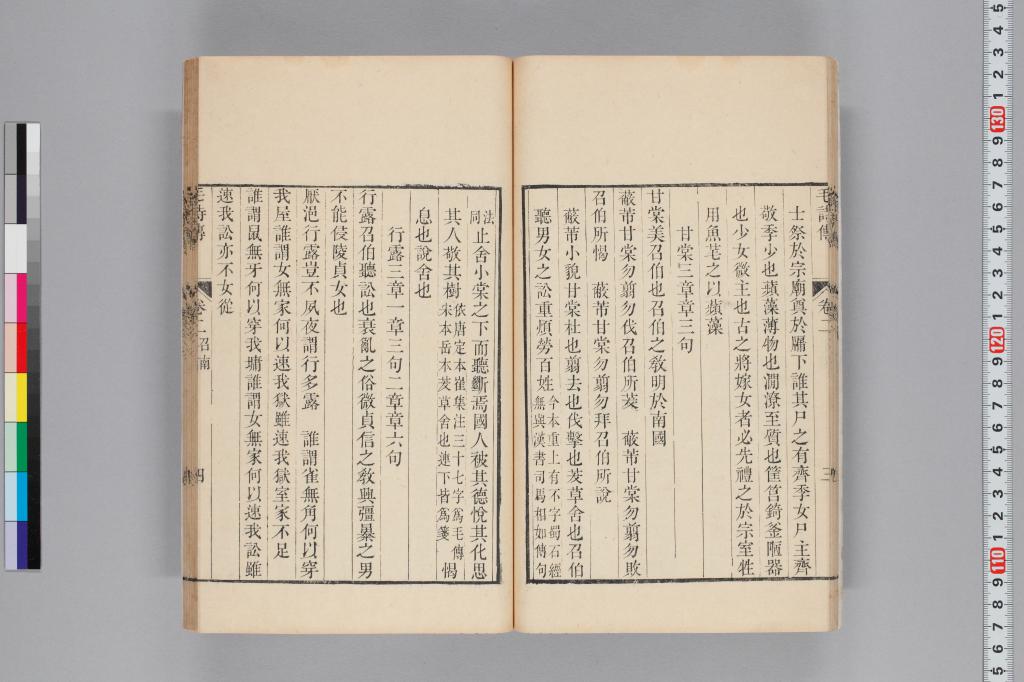 毛詩傳
卷二
三
士祭於宗廟奠於牖下誰其尸之有齊季女尸主齊
敬季少也蘋藻薄物也澗潦至質也筐筥錡釜陋器
也少女微主也古之將嫁女者必先禮之於宗室牲
用魚芼之以蘋藻
甘棠三章章三句
甘棠美召伯也召伯之敎明於南國
蔽芾甘棠勿翦勿伐召伯所茇　蔽芾甘棠勿翦勿敗
召伯所愒　蔽芾甘棠勿翦勿拜召伯所說
蔽芾小貌甘棠杜也翦去也伐擊也茇草舍也召伯
聽男女之訟重煩勞百姓今本重上有不字蜀石經無與漢書司馬相如傳句
法同止舍小棠之下而聽斷焉國人被其德悅其化思
其人敬其樹依唐定本崔集注三十七字爲毛傳宋本岳本茇草舍也連下皆爲箋愒
息也說舍也
行露三章一章三句二章章六句
行露召伯聽訟也衰亂之俗微貞信之敎興彊暴之男
不能侵陵貞女也
厭浥行露豈不夙夜謂行多露　誰謂雀無角何以穿
我屋誰謂女無家何以速我獄雖速我獄室家不足
誰謂鼠無牙何以穿我墉誰謂女無家何以速我訟雖
速我訟亦不女從
毛詩傳
卷二召南
四